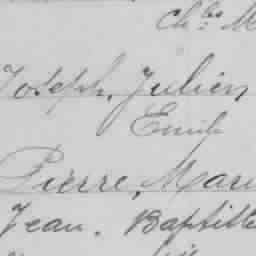 Ch.les M
Joseph, Julien
Emile
Pierre, Mari
Jean. Baptiste